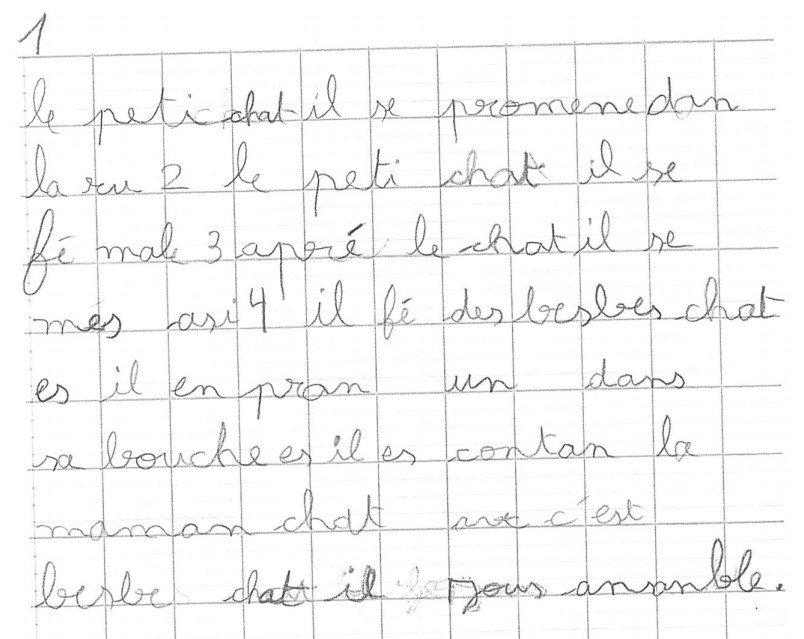 1
le peti chat il se promene dan
la ru 2 le peti chat il se
fé mal 3 apré le chat il se
mes asi 4 il fé des besbes chat
es il en pran un dans
sa bouche es il es contan la
maman chat avec c'est
besbe chat il jous ansanble.